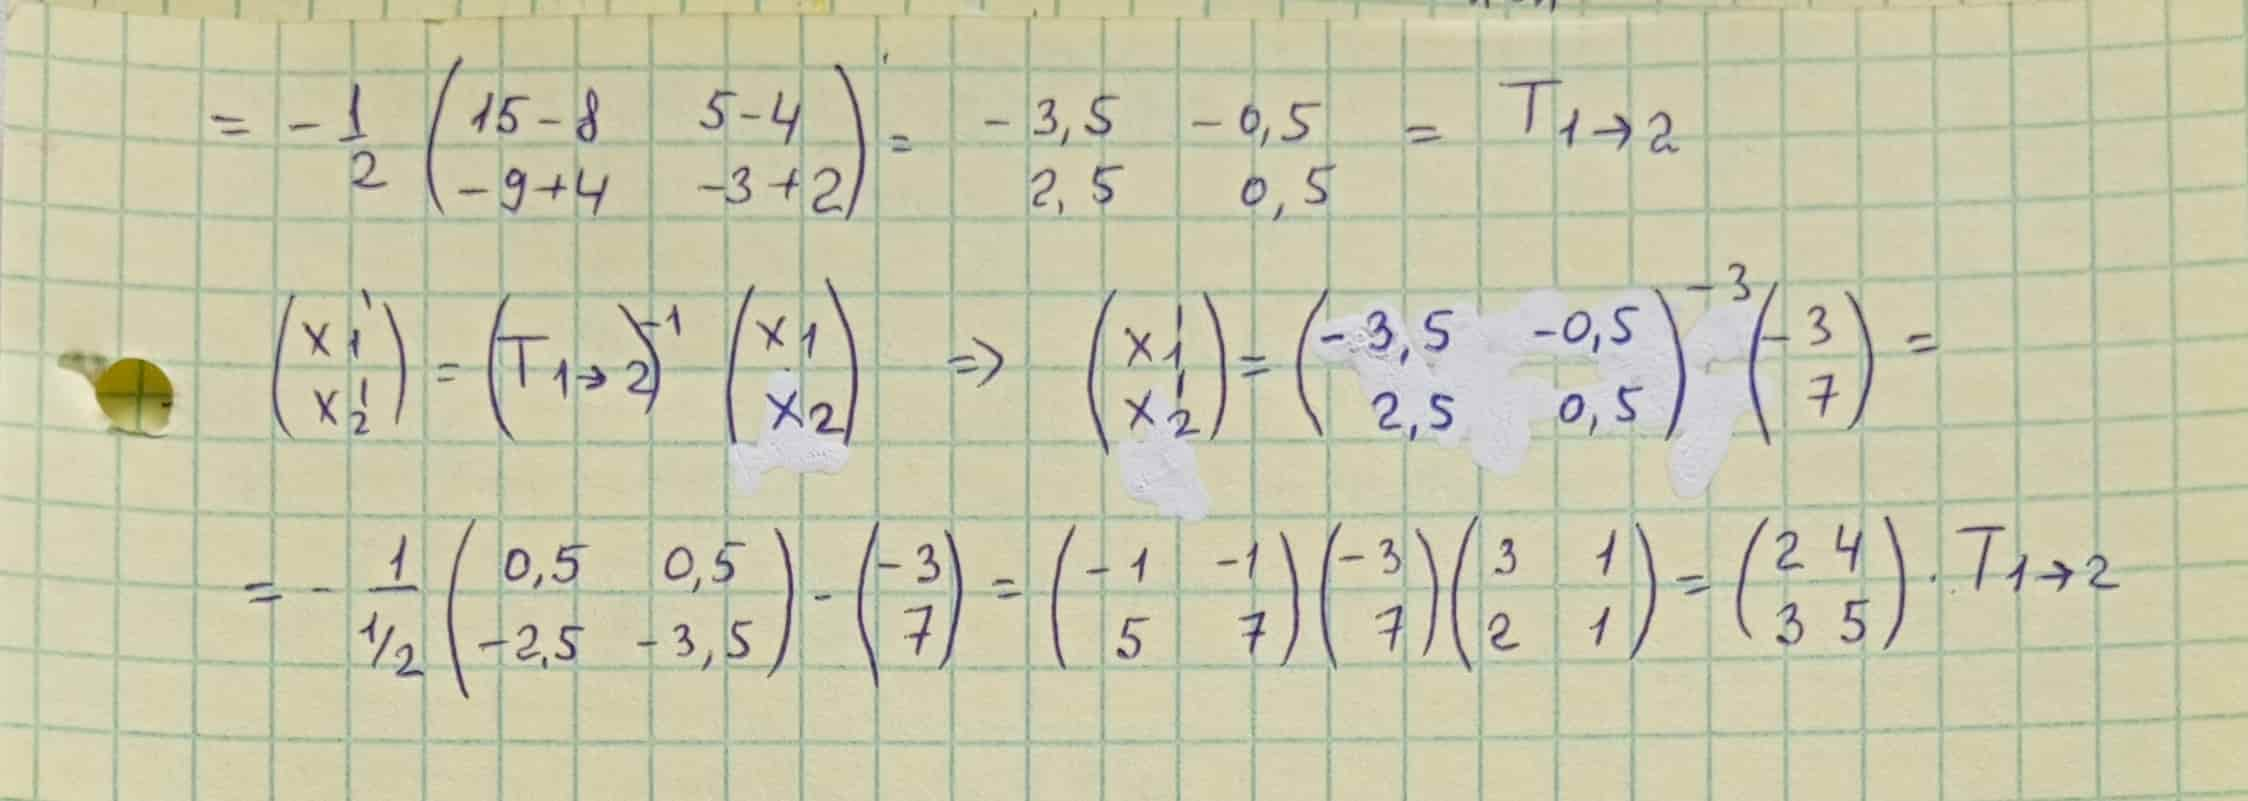 = -1/2 (15-8 5-4; -9+4 -3+2) = -3,5 -0,5; 2,5 0,5 = T1→2
(x1'; x2') = (T1→2)^-1 (x1; x2) => (x1'; x2') = (-3,5 -0,5; 2,5 0,5)^-3 (-3; 7) =
= -1/(1/2) (0,5 0,5; -2,5 -3,5) - (-3; 7) = (-1 -1; 5 7)(-3; 7)(3 1; 2 1) = (2 4; 3 5) · T1→2